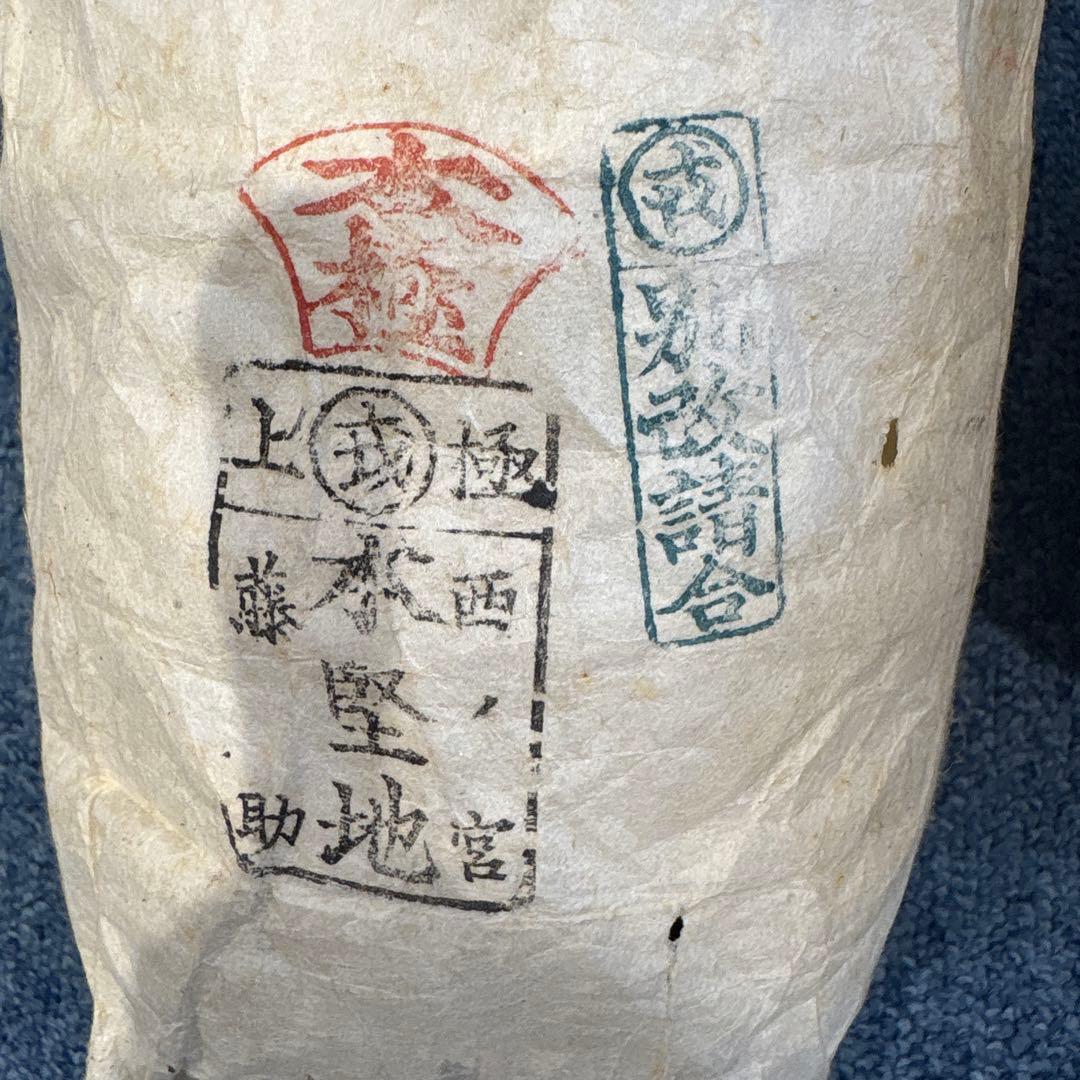 戎
別改請合
大極
極戎上
西ノ宮
本堅地
藤助